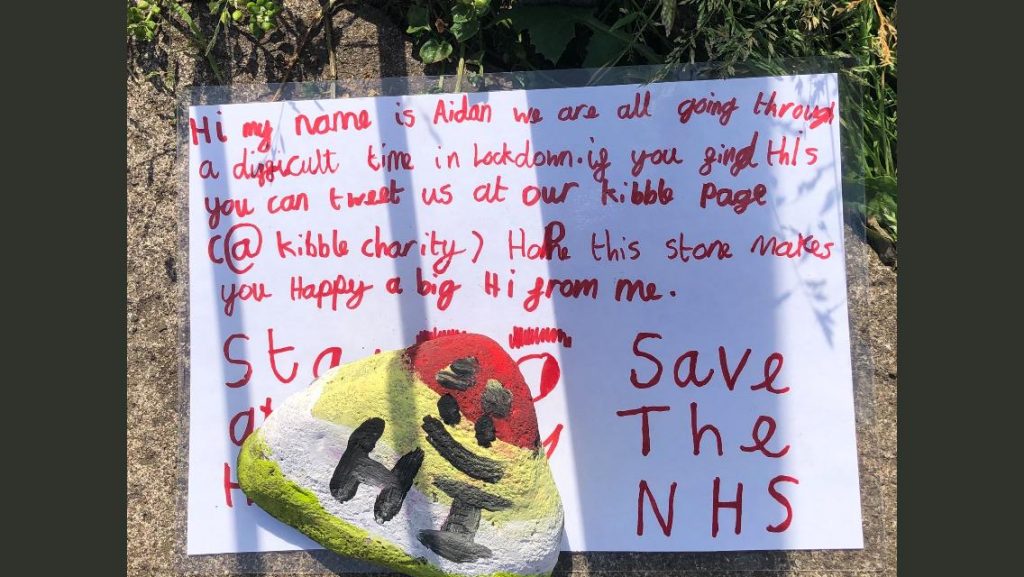 Hi my name is Aidan we are all going through
a difficult time in Lockdown. if you find this
you can tweet us at our kibble page
(@ kibble charity) Hope this stone makes
you Happy a big Hi from me.
Save
The
NHS
HI